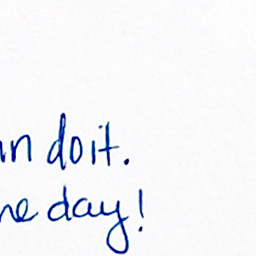 un do it.
ne day!